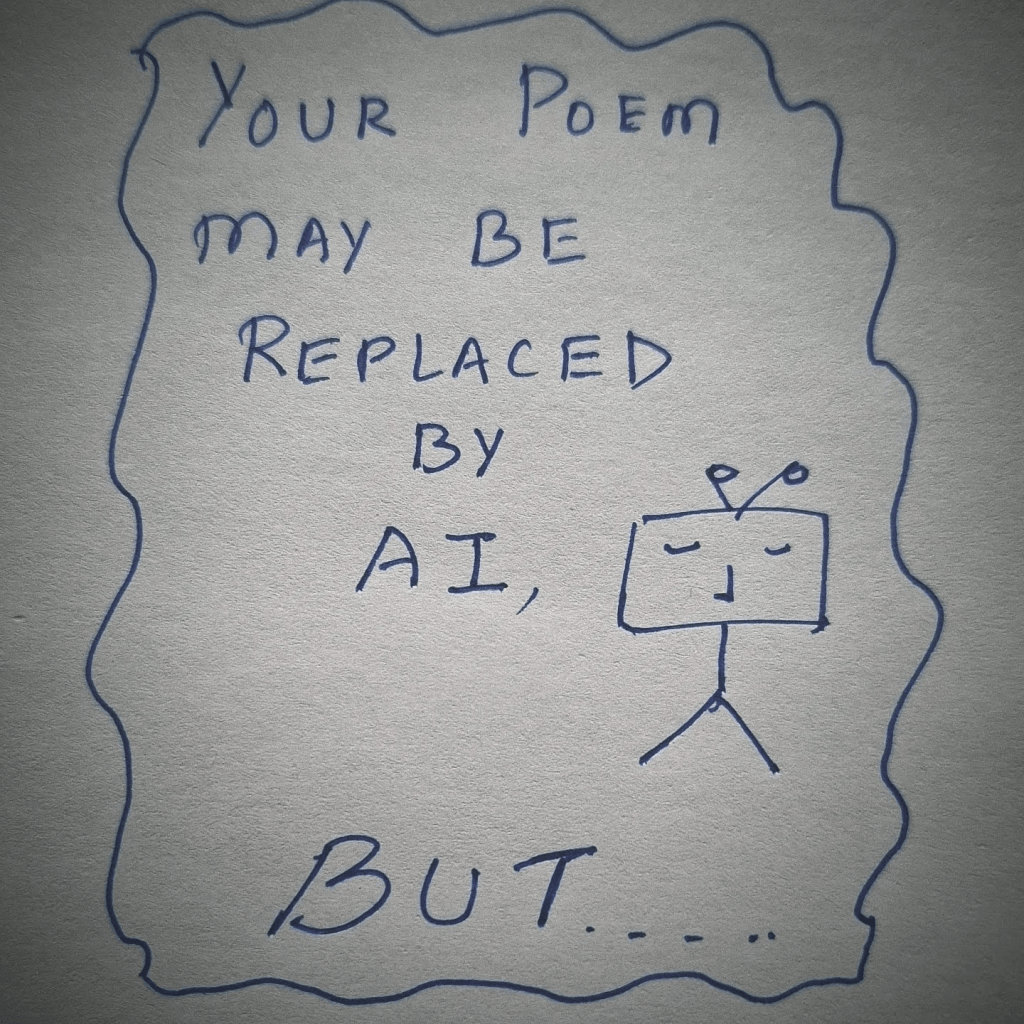 YOUR POEM
MAY BE
REPLACED
BY
AI,
BUT......